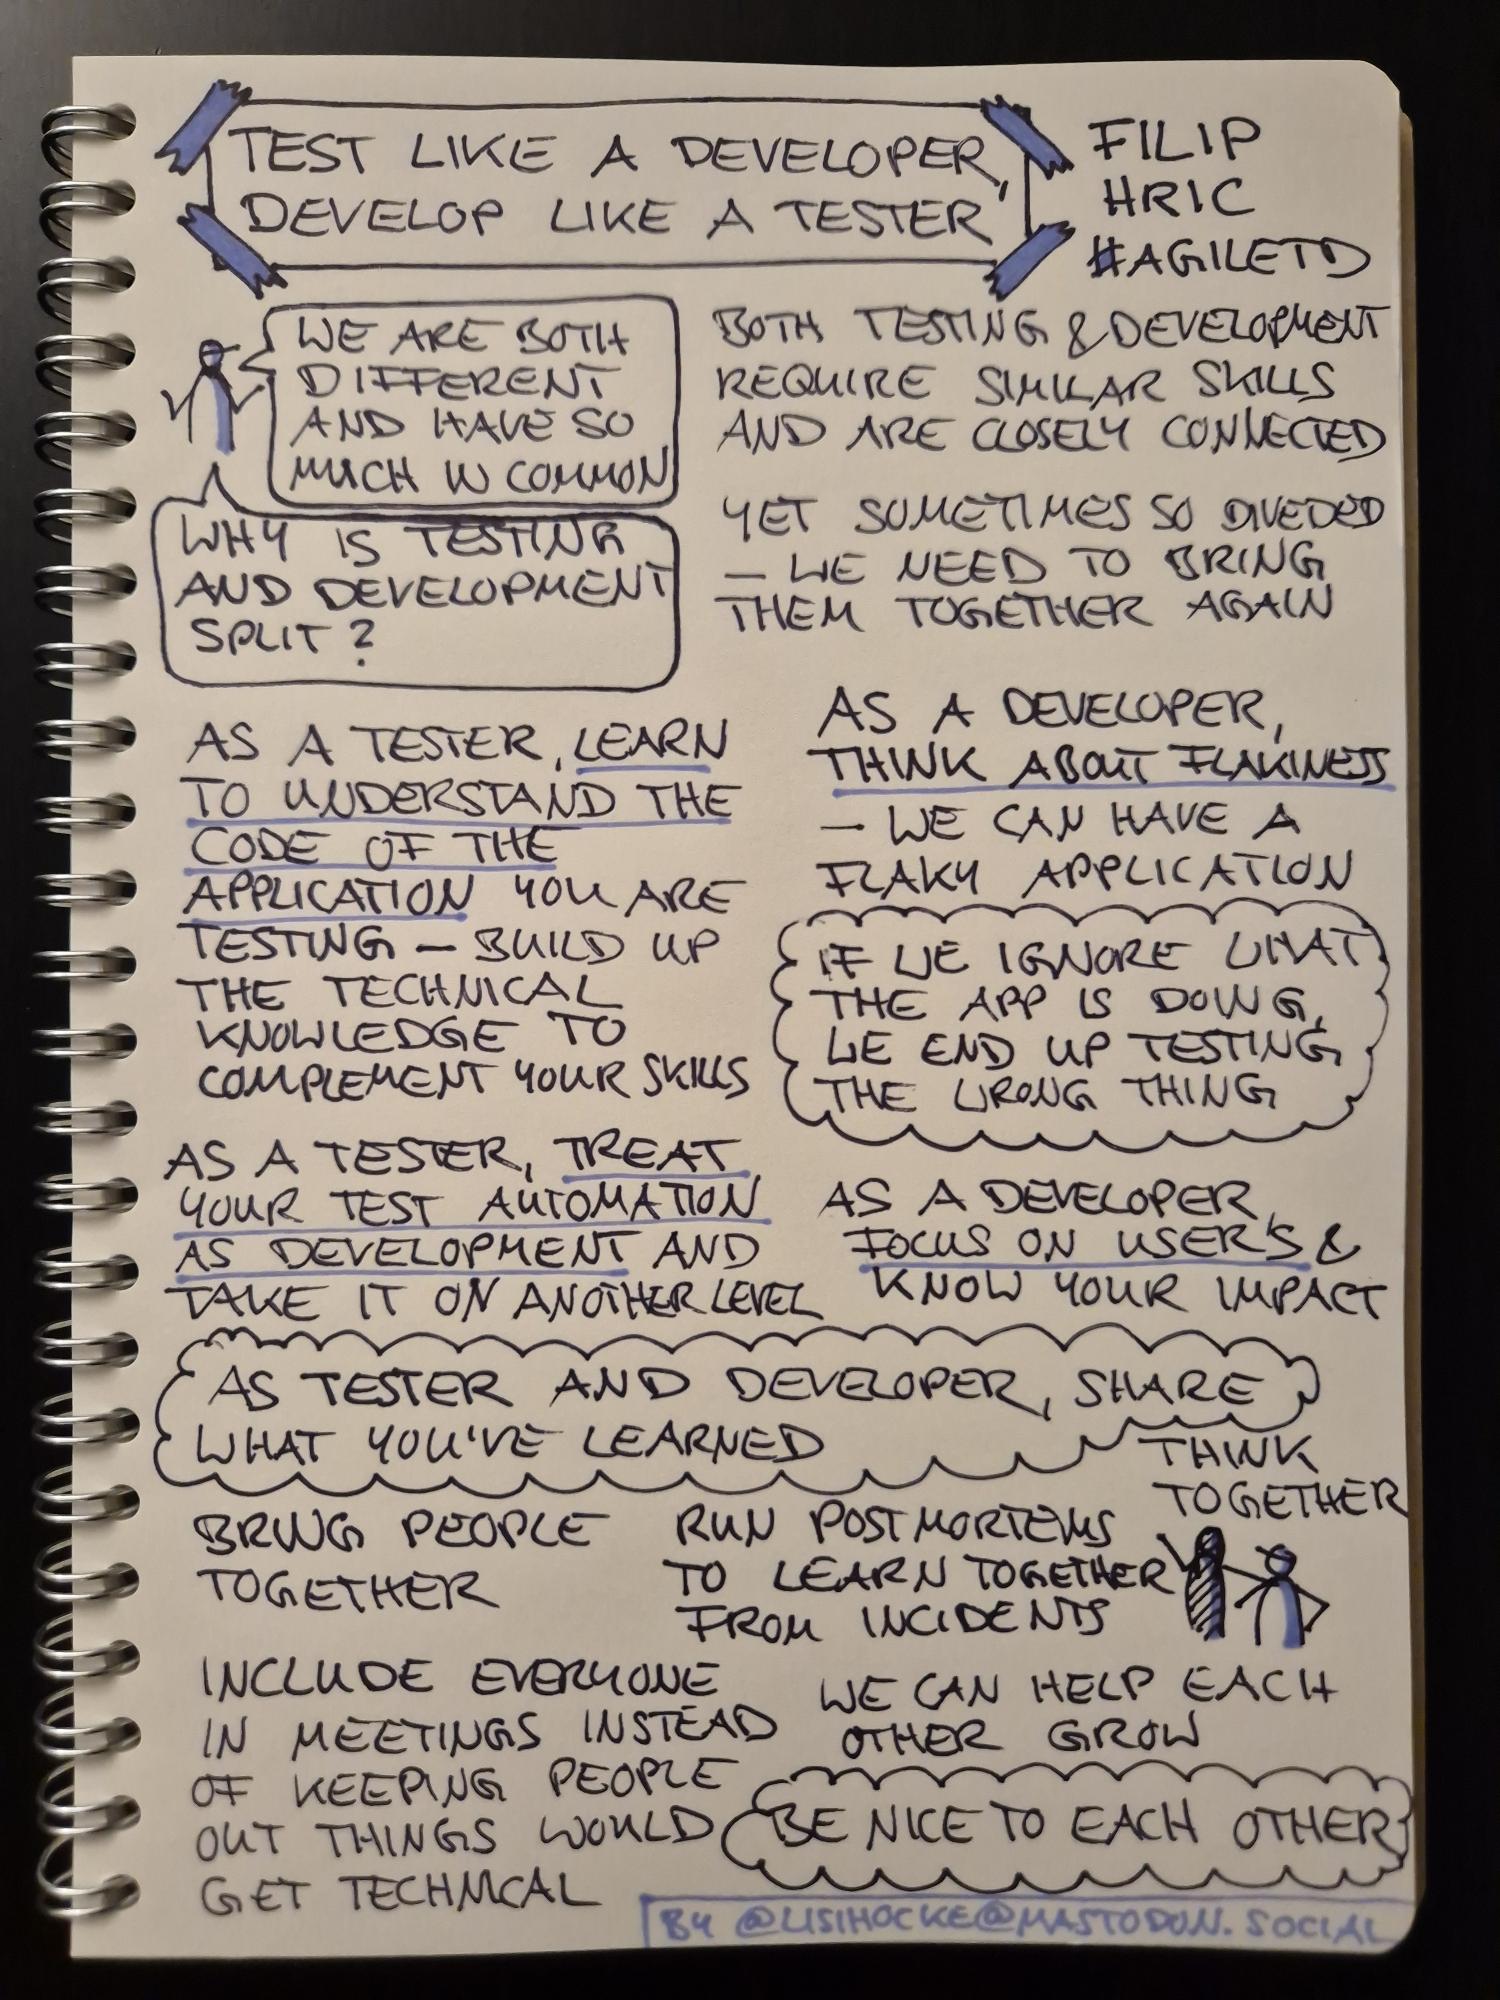 TEST LIKE A DEVELOPER,
DEVELOP LIKE A TESTER
FILIP
HRIC
#AGILETD
WE ARE BOTH
DIFFERENT
AND HAVE SO
MUCH IN COMMON
WHY IS TESTING
AND DEVELOPMENT
SPLIT?
BOTH TESTING & DEVELOPMENT
REQUIRE SIMILAR SKILLS
AND ARE CLOSELY CONNECTED
YET SOMETIMES SO DIVEDED
– WE NEED TO BRING
THEM TOGETHER AGAIN
AS A TESTER, LEARN
TO UNDERSTAND THE
CODE OF THE
APPLICATION YOU ARE
TESTING – BUILD UP
THE TECHNICAL
KNOWLEDGE TO
COMPLEMENT YOUR SKILLS
AS A DEVELOPER,
THINK ABOUT FLAKINESS
– WE CAN HAVE A
FLAKY APPLICATION
IF WE IGNORE WHAT
THE APP IS DOING,
WE END UP TESTING
THE WRONG THING
AS A TESTER, TREAT
YOUR TEST AUTOMATION
AS DEVELOPMENT AND
TAKE IT ON ANOTHER LEVEL
AS A DEVELOPER,
FOCUS ON USER'S &
KNOW YOUR IMPACT
AS TESTER AND DEVELOPER, SHARE
WHAT YOU'VE LEARNED
THINK
TOGETHER
BRING PEOPLE
TOGETHER
RUN POSTMORTEMS
TO LEARN TOGETHER
FROM INCIDENTS
INCLUDE EVERYONE
IN MEETINGS INSTEAD
OF KEEPING PEOPLE
OUT THINGS WOULD
GET TECHNICAL
WE CAN HELP EACH
OTHER GROW
BE NICE TO EACH OTHER
BY @LISIHOCKE@MASTODON.SOCIAL